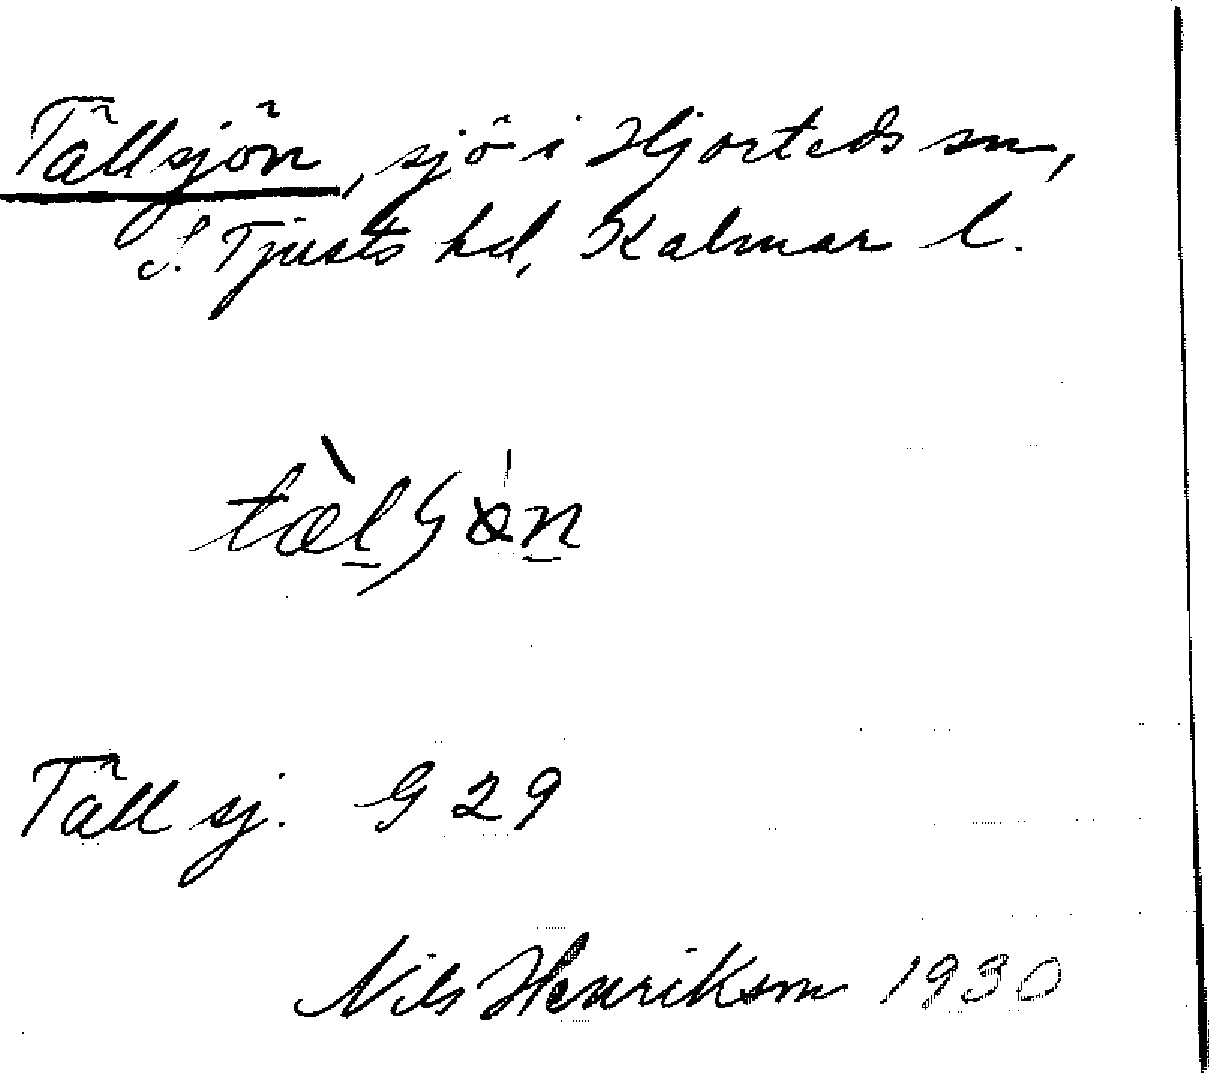 Tällsjön, sjö i Hjorteds sn,
S. Tjusts hd, Kalmar l.
Täll sj. G 29
Nils Henrikson 1930